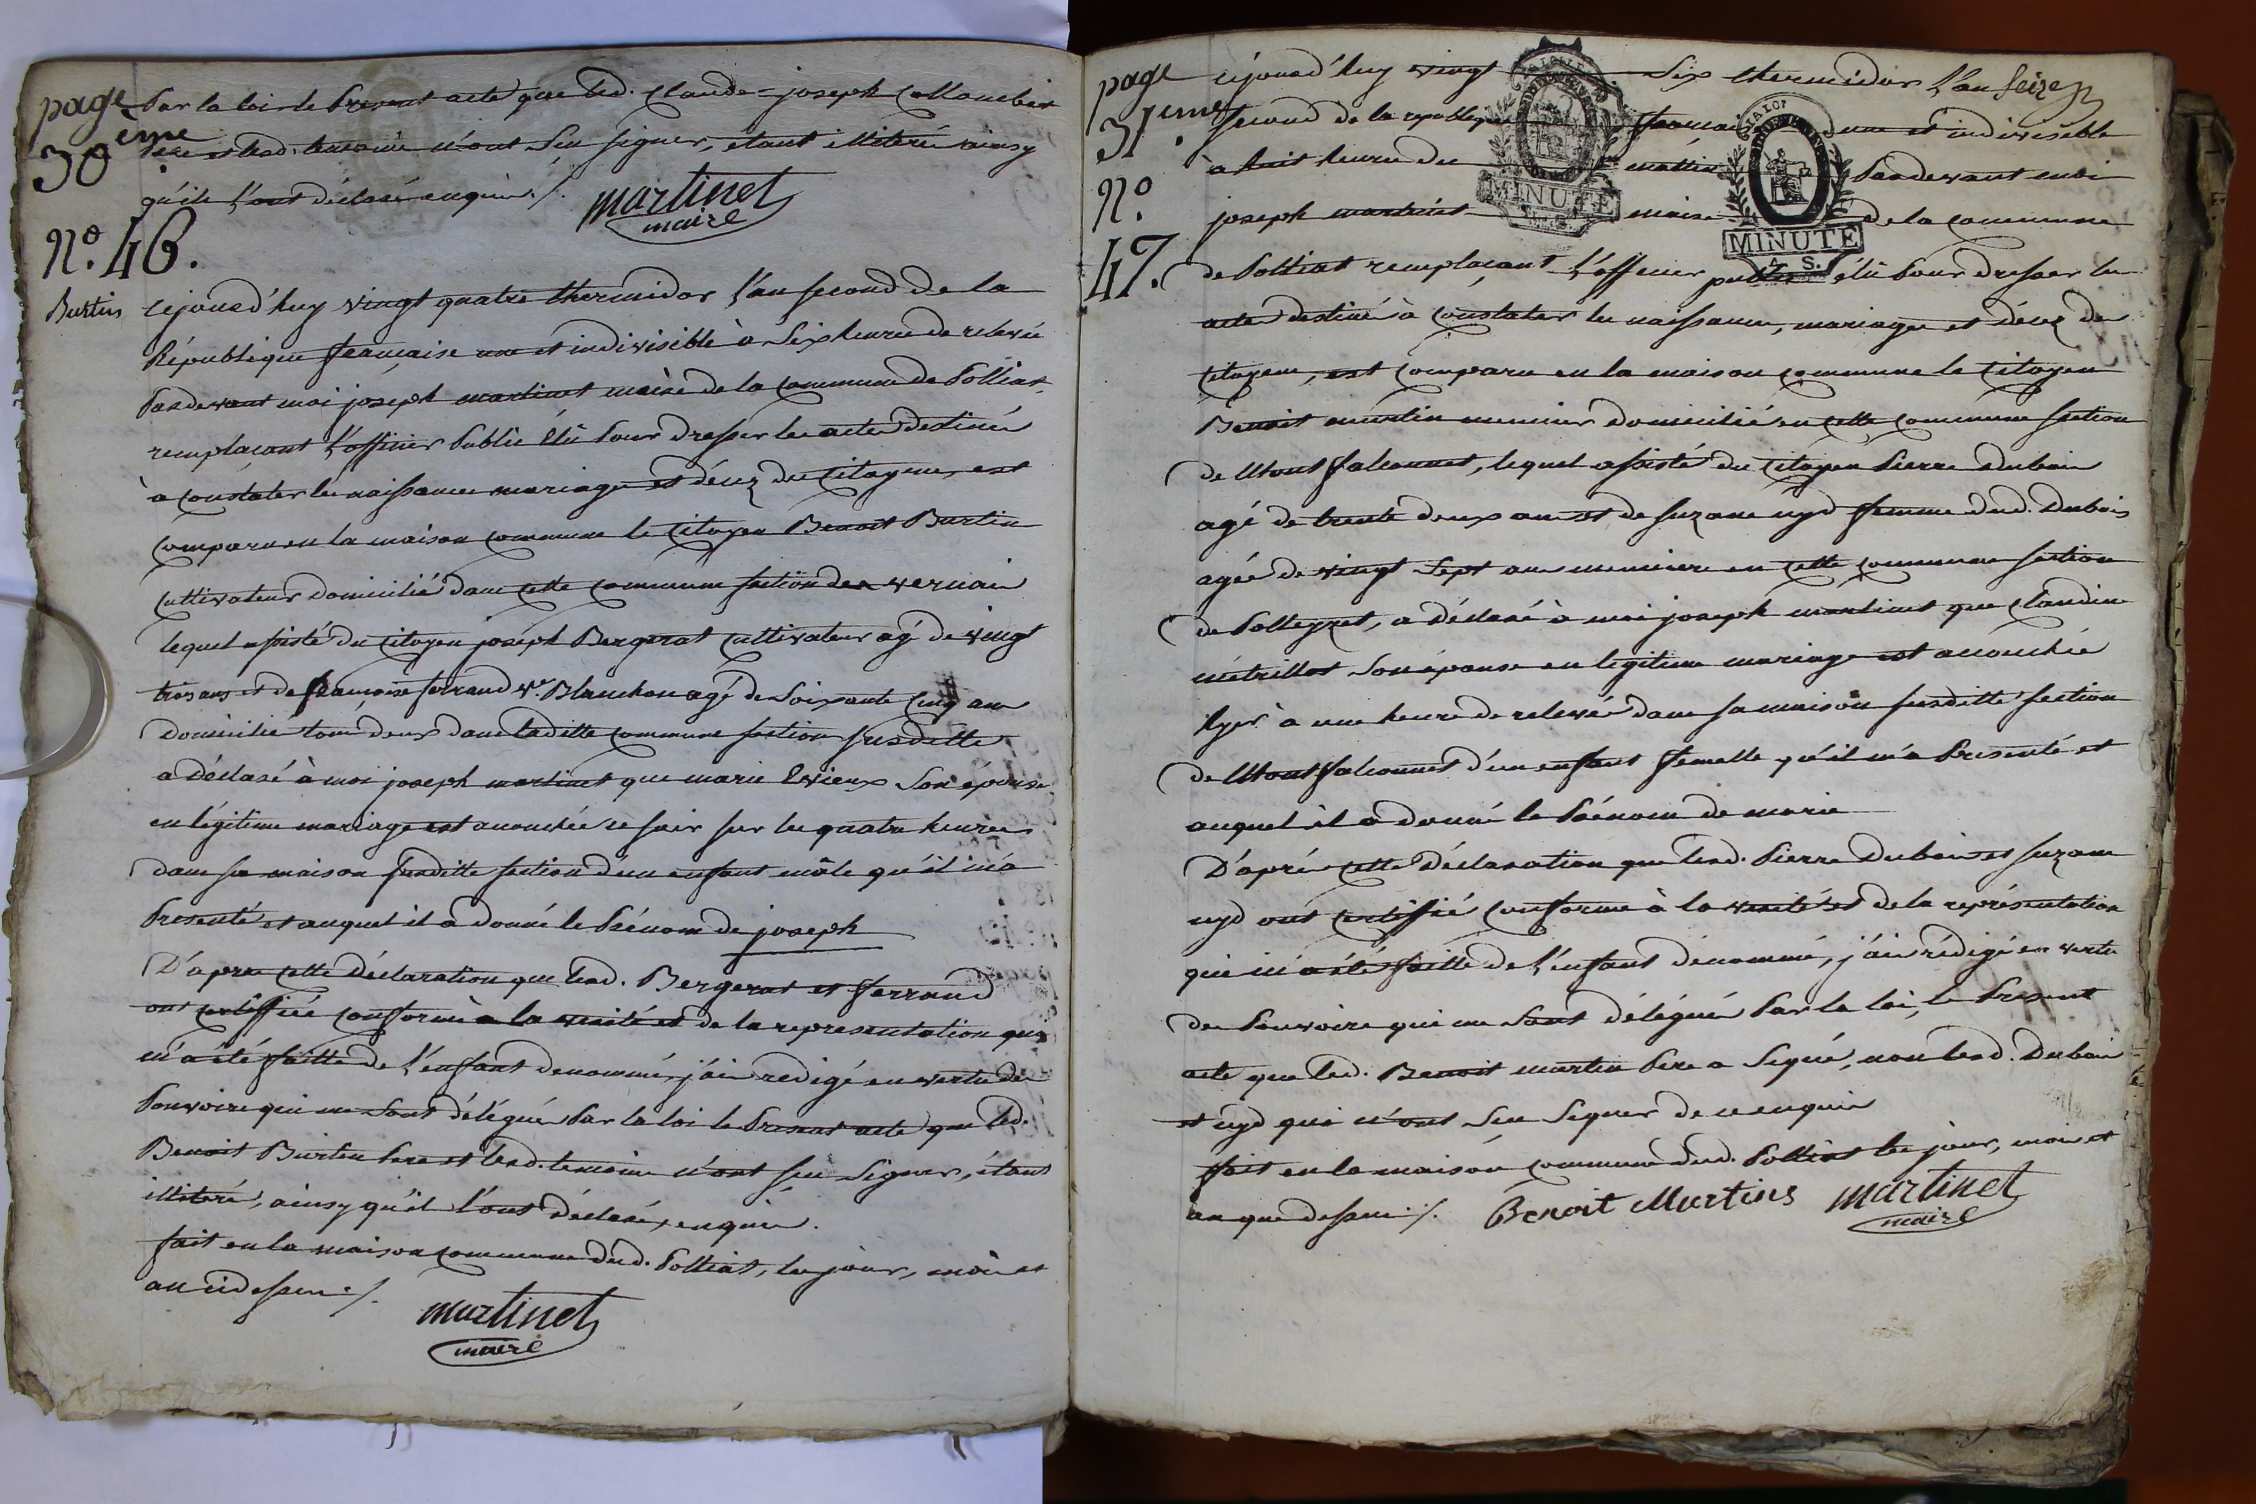 page
30ème
par la loi le présent acte que led. Claude=joseph Collombet
père et lesd. temoins n'ont seu signer, étant illiteré ainsy
qu'ils l'ont déclaré enquis ./.
martinet
maire
N.º 46.
Burtin
cejourd'huy vingt quatre thermidor l'an second de la
République française une et indivisible à Six heures de relevée
pardevant moi joseph martinet maire de la commune de Polliat
remplaçant l'officier Public élû pour dresser les actes destinés
à constater les naissances mariages et décez des citoyens, est
comparu en la maison commune le citoyen Benoit Burtin
cultivateur domicilié dans cette commune section des vernais
lequel assisté du citoyen joseph Bergerat cultivateur agé de vingt
trois ans et de françoise ferrand v.e Blanchon agé de Soixante Cinq ans
domicilié tous deux dans laditte commune section susditte
a déclaré à moi joseph martinet que marie Evieux Son épouse
en légitime mariage est acouchée ce soir sur les quatre heures
dans sa maison susditte section d'un enfant mâle qu'il m'a
présenté et auquel il a donné le Prénom de joseph
D'après cette déclaration que lesd. Bergerat et ferrand
ont certiffiée conforme à la verité et de la representation qui
m'a été faitte de l'enfant denommé, j'ai redigé en vertu des
pouvoirs qui me sont délégués par la loi le présent acte que led.
Benoit Burtin père et lesd. temoins n'ont seu signer, étant
illiteré, ainsy qu'il l'ont déclaré, enquis.
fait en la maison commune dud. Polliat, les jour, mois et
an cidessus ./.
martinet
maire
page
31ème.
N.º
47.
cejourd'huy vingt Six thermidor l'an
second de la republique française une et indivisible
à huit heures du mattin Pardevant moi
joseph martinet maire de la commune
de Polliat remplaçant l'officier public élû pour dresser les
actes destinés à constater les naissances, mariages et décez des
citoyens, est comparu en la maison commune le citoyen
Benoit martin meunier domicilié en cette commune section
de Montfalconnet, lequel assisté du citoyen Pierre Dubois
agé de trente deux ans et de suzane nyd femme dud. Dubois
agée de vingt Sept ans meuniers en cette commune section
de Polleyzet, a déclaré à moi joseph martinet que Claudine
métrillot Son épouse en legitime mariage est acouchée
hyer à une heure de relevée dans sa maison susditte section
de Montfalconnet d'un enfant femelle qu'il m'a présenté et
auquel il a donné le Prénom de marie
D'après cette déclaration que lesd. Pierre Dubois et suzane
nyd ont certiffié conforme à la verité et de la représentation
qui m'a été faitte de l'enfant dénommé, j'ai rédigé en vertu
des pouvoirs qui me sont délégués par la loi, le present
acte que led. Benoit martin père a Signé, non lesd. Dubois
et nyd qui n'ont Seu Signer de ce enquis
fait en la maison commune dud. Polliat les jour, mois et
an que dessus ./.
Benoit Martins
martinet
maire
MINUTE
MINUTE
4. S.